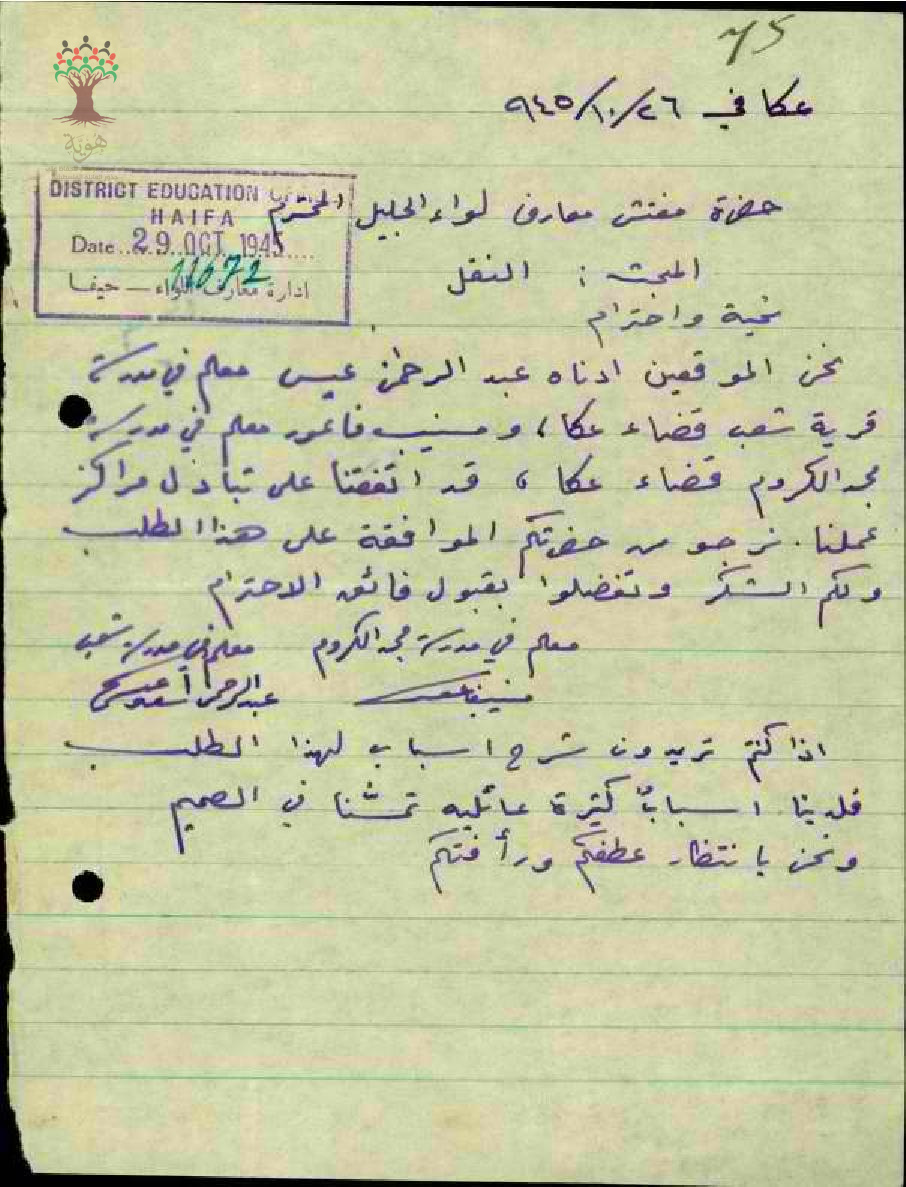 75
هوية
عكا في ٢٦/١٠/٩٤٥
DISTRICT EDUCATION
HAIFA
Date 29 OCT 1945
11672
ادارة معارف اللواء — حيفا
حضرة مفتش معارف لواء الجليل المحترم
المبحث : النقل
تحية واحترام
نحن الموقعين ادناه عبد الرحمن عيسى معلم في مدرسة
قرية شعب قضاء عكا، ومنيب فاعور معلم في مدرسة
مجد الكروم قضاء عكا ، قد اتفقنا على تبادل مراكز
عملنا. نرجو من حضرتكم الموافقة على هذا الطلب
ولكم الشكر وتفضلوا بقبول فائق الاحترام
معلم في مدرسة مجد الكروم معلم في مدرسة شعب
عبد الرحمن
اذا كنتم تريدون شرح اسباب لهذا الطلب
فلدينا اسبابٌ كثيرة عائليه تمسّنا في الصميم
ونحن بانتظار عطفكم ورأفتكم